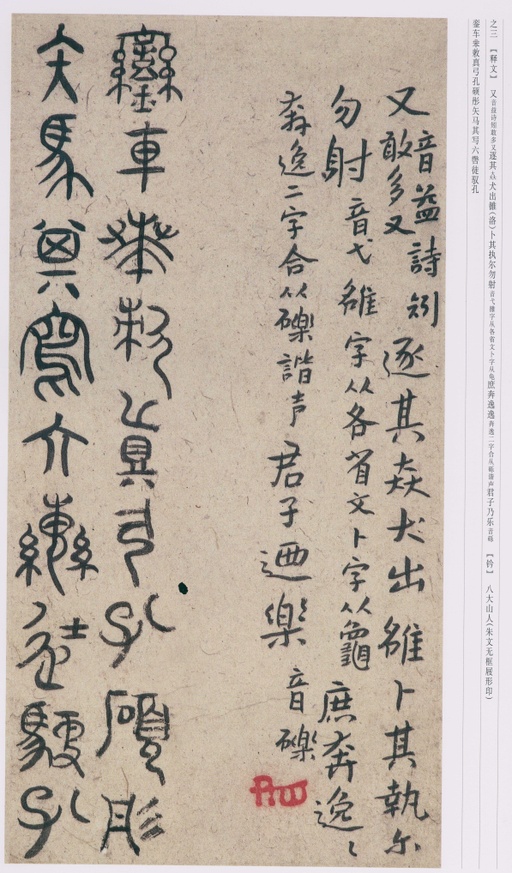 之三 【释文】 又音益诗矧敢多又逐其猋犬出雒(洛)卜其执尔勿射音弋雒字从各省文卜字从龟庶奔逸逸奔逸二字合从砾谐声君子乃乐音砾 【钤】 八大山人(朱文无框屐形印)
銮车奉敕真弓孔硕彤矢马其写六辔徒驭孔
又音益詩矧敢多又逐其猋犬出雒卜其執尔
勿射音弋雒字从各省文卜字从龜庶奔逸〻
奔逸二字合从礫諧声君子迺樂音礫
鑾車奉敕真弓孔碩彤
矢馬其寫六轡徒馭孔